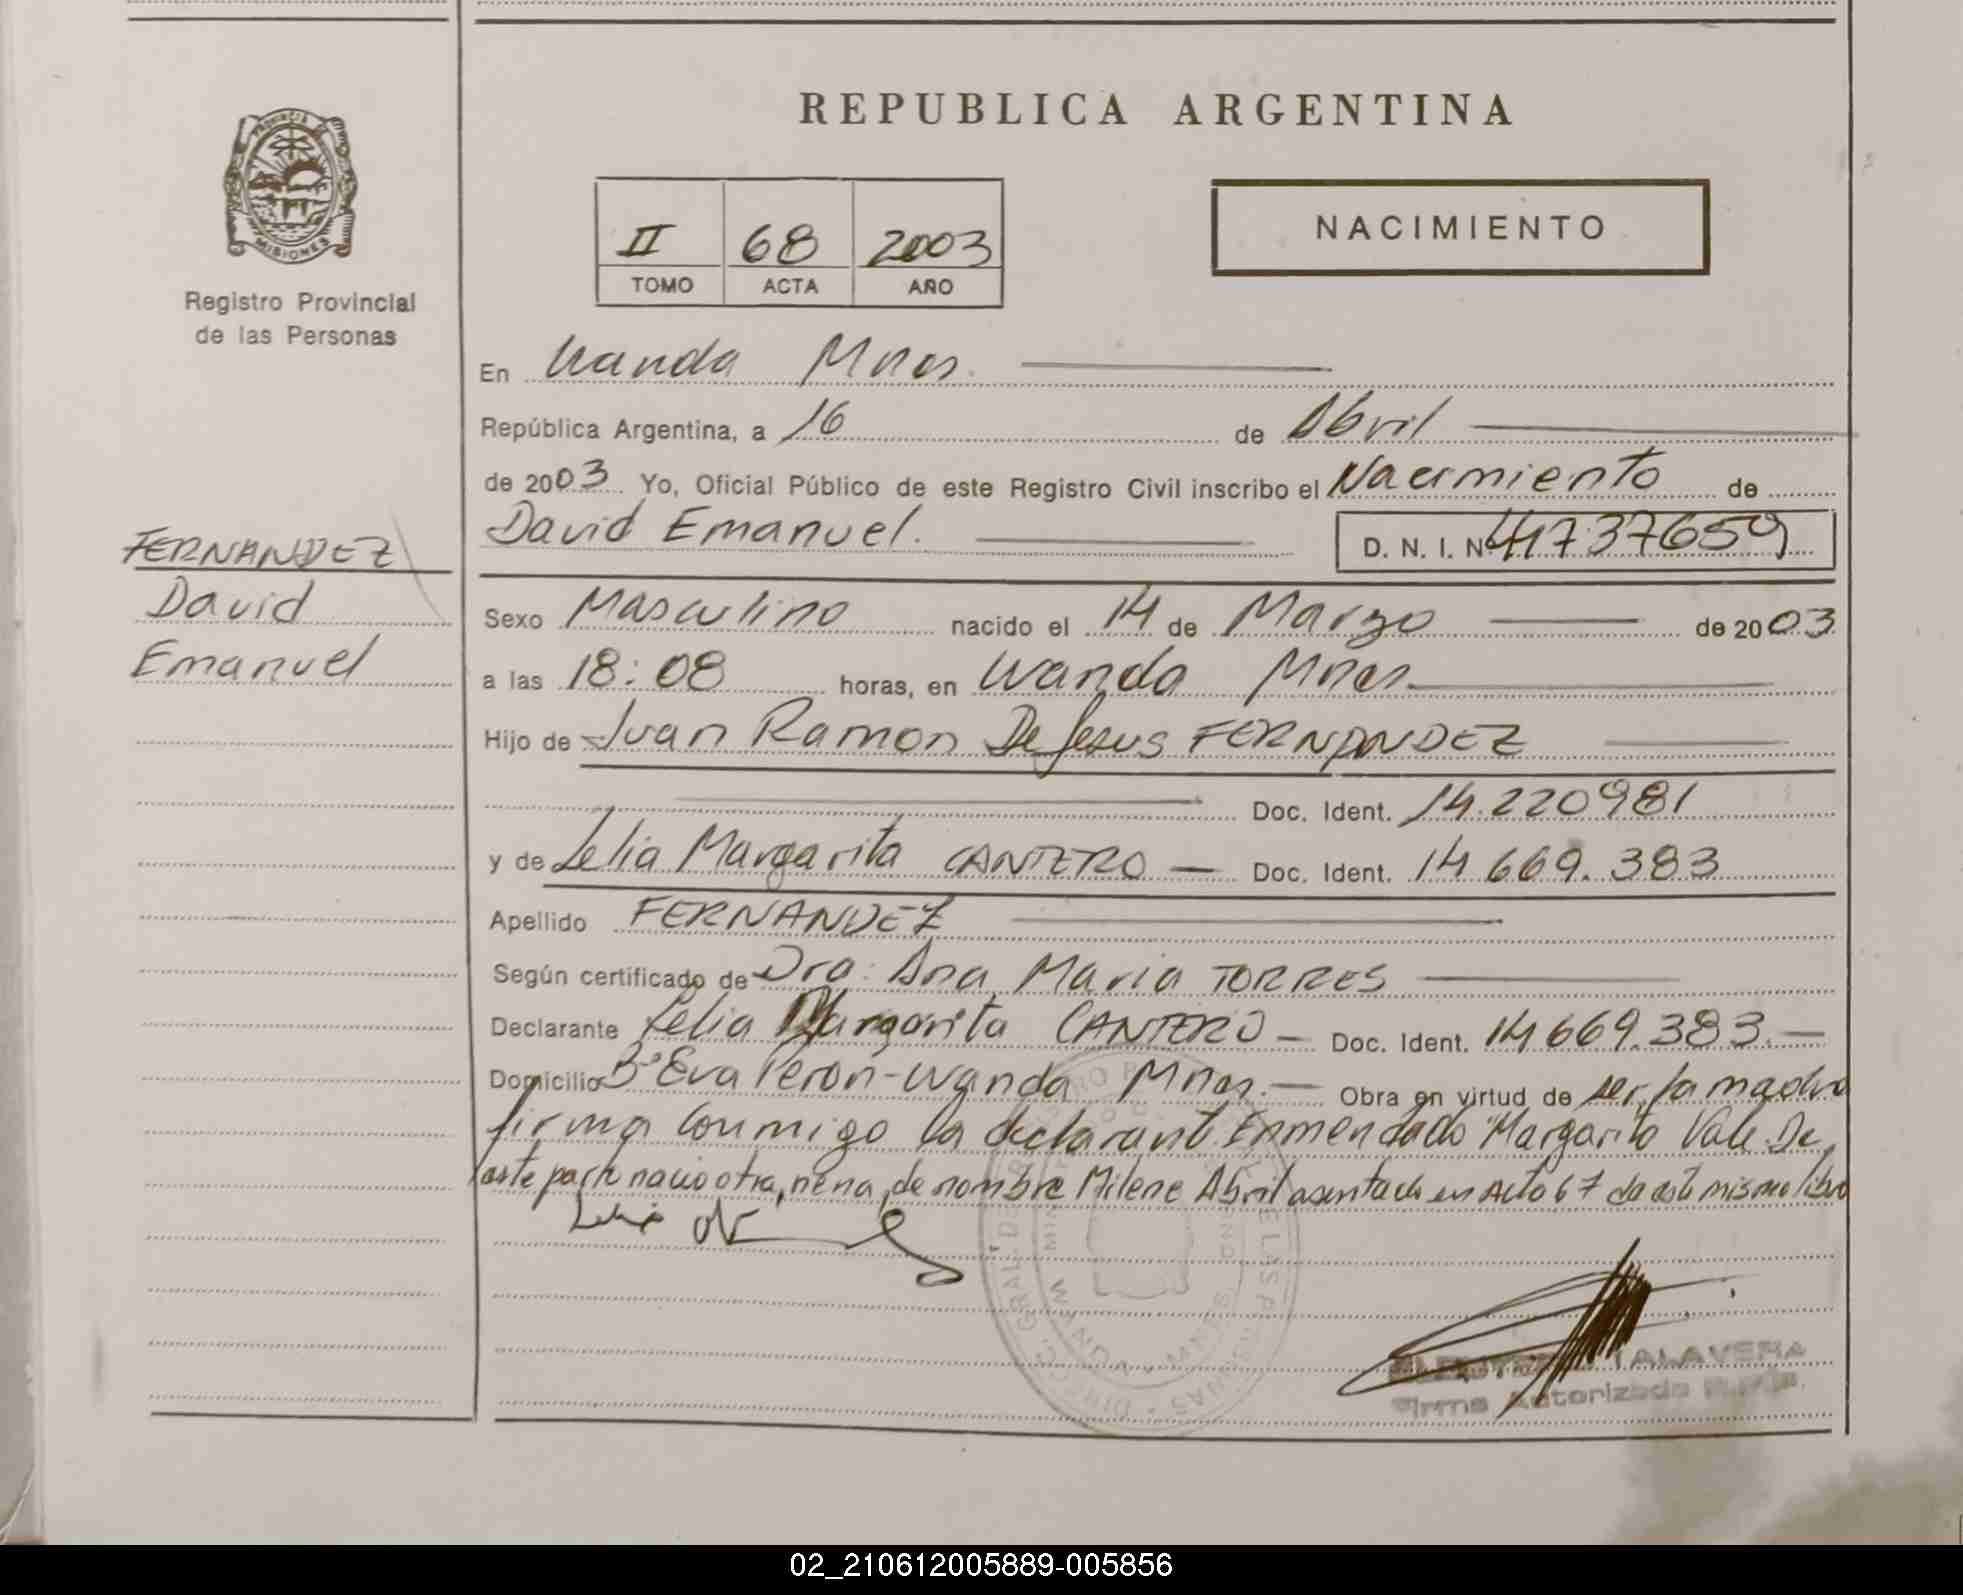 REPUBLICA ARGENTINA
PROVINCIA DE
MISIONES
Registro Provincial
de las Personas
II 68 2003
TOMO ACTA AÑO
NACIMIENTO
En Wanda Mnes.
República Argentina, a 16 de Abril
de 2003 Yo, Oficial Público de este Registro Civil inscribo el Nacimiento de
David Emanuel. D. N. I. Nº
FERNANDEZ
David
Emanuel
Sexo Masculino nacido el 14 de Marzo de 2003
a las 18:08 horas, en Wanda Mnes.
Hijo de Juan Ramon De Jesus FERNANDEZ
Doc. Ident. 14.220981
y de Lelia Margarita CANTERO Doc. Ident. 14669.383
Apellido FERNANDEZ
Según certificado de Dra: Ana Maria TORRES
Declarante Lelia Margarita CANTERO Doc. Ident. 14669.383.
Domicilio Bº Eva Peron-Wanda Mnes. Obra en virtud de ser la madre
firma conmigo la declarante. Enmendado "Margarita Vale. De
este parto nacio otra, nena, de nombre Milene Abril asentada en Acta 67 de este mismo libro
Lelia
WANDA - MNES
TALAVERA
Firma Autorizada
02_210612005889-005856